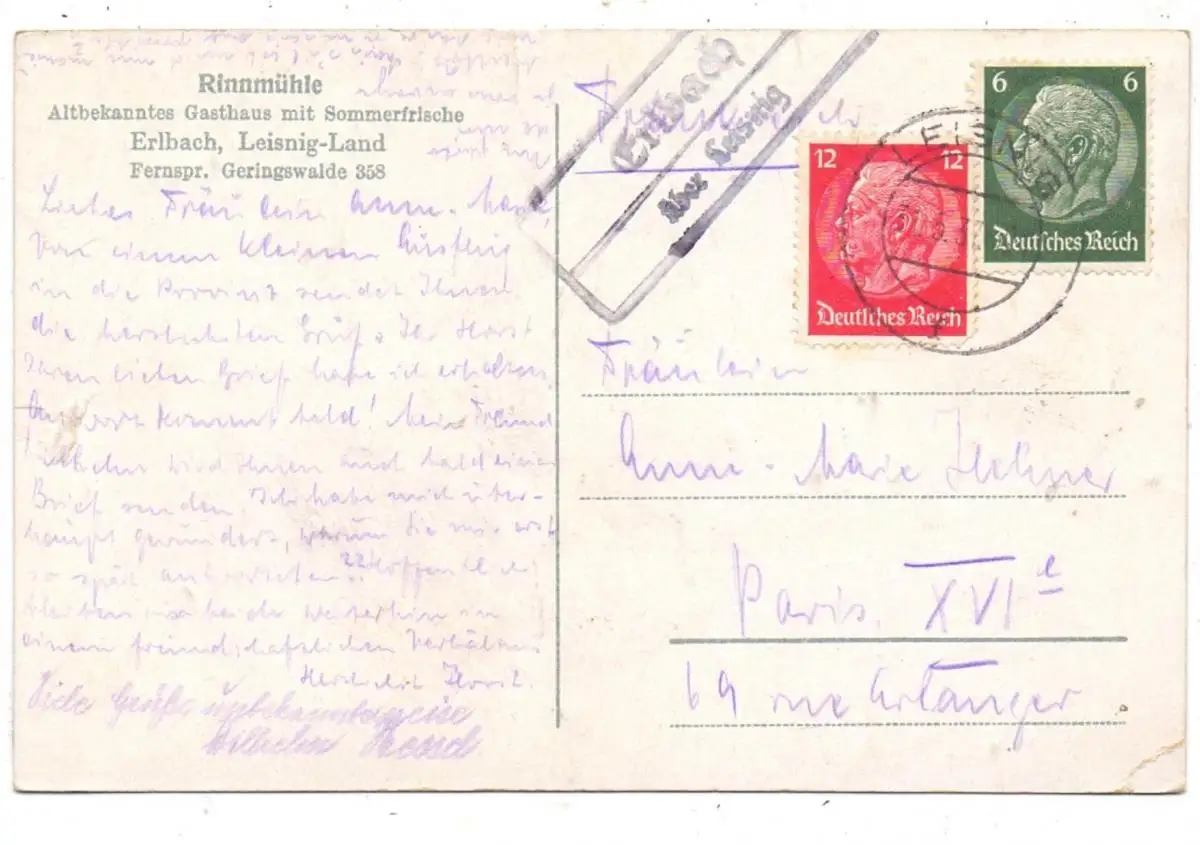 Rinnmühle
Altbekanntes Gasthaus mit Sommerfrische
Erlbach, Leisnig-Land
Fernspr. Geringswalde 358
Liebes Fräulein Anne-Marie,
Von einem kleinen Ausflug
in die Provinz sendet Ihnen
die herzlichsten Grüße Ihr Horst
Ihren lieben Brief habe ich erhalten.
Antwort kommt bald! Mein Freund
Wilhelm wird Ihnen auch bald einen
Brief senden. Ich habe mich über-
haupt gewundert, warum Sie mir erst
so spät antworteten. Hoffentlich
bleiben wir beide weiterhin in
einem freundschaftlichen Verhältnis
Herzlichst Horst.
Viele Grüße unbekannterweise
Wilhelm
Erlbach
über Leisnig
LEISNIG
12 12
Deutsches Reich
6 6
Deutsches Reich
Fräulein
Anne-Marie
Paris. XVI e
69 rue Erlanger